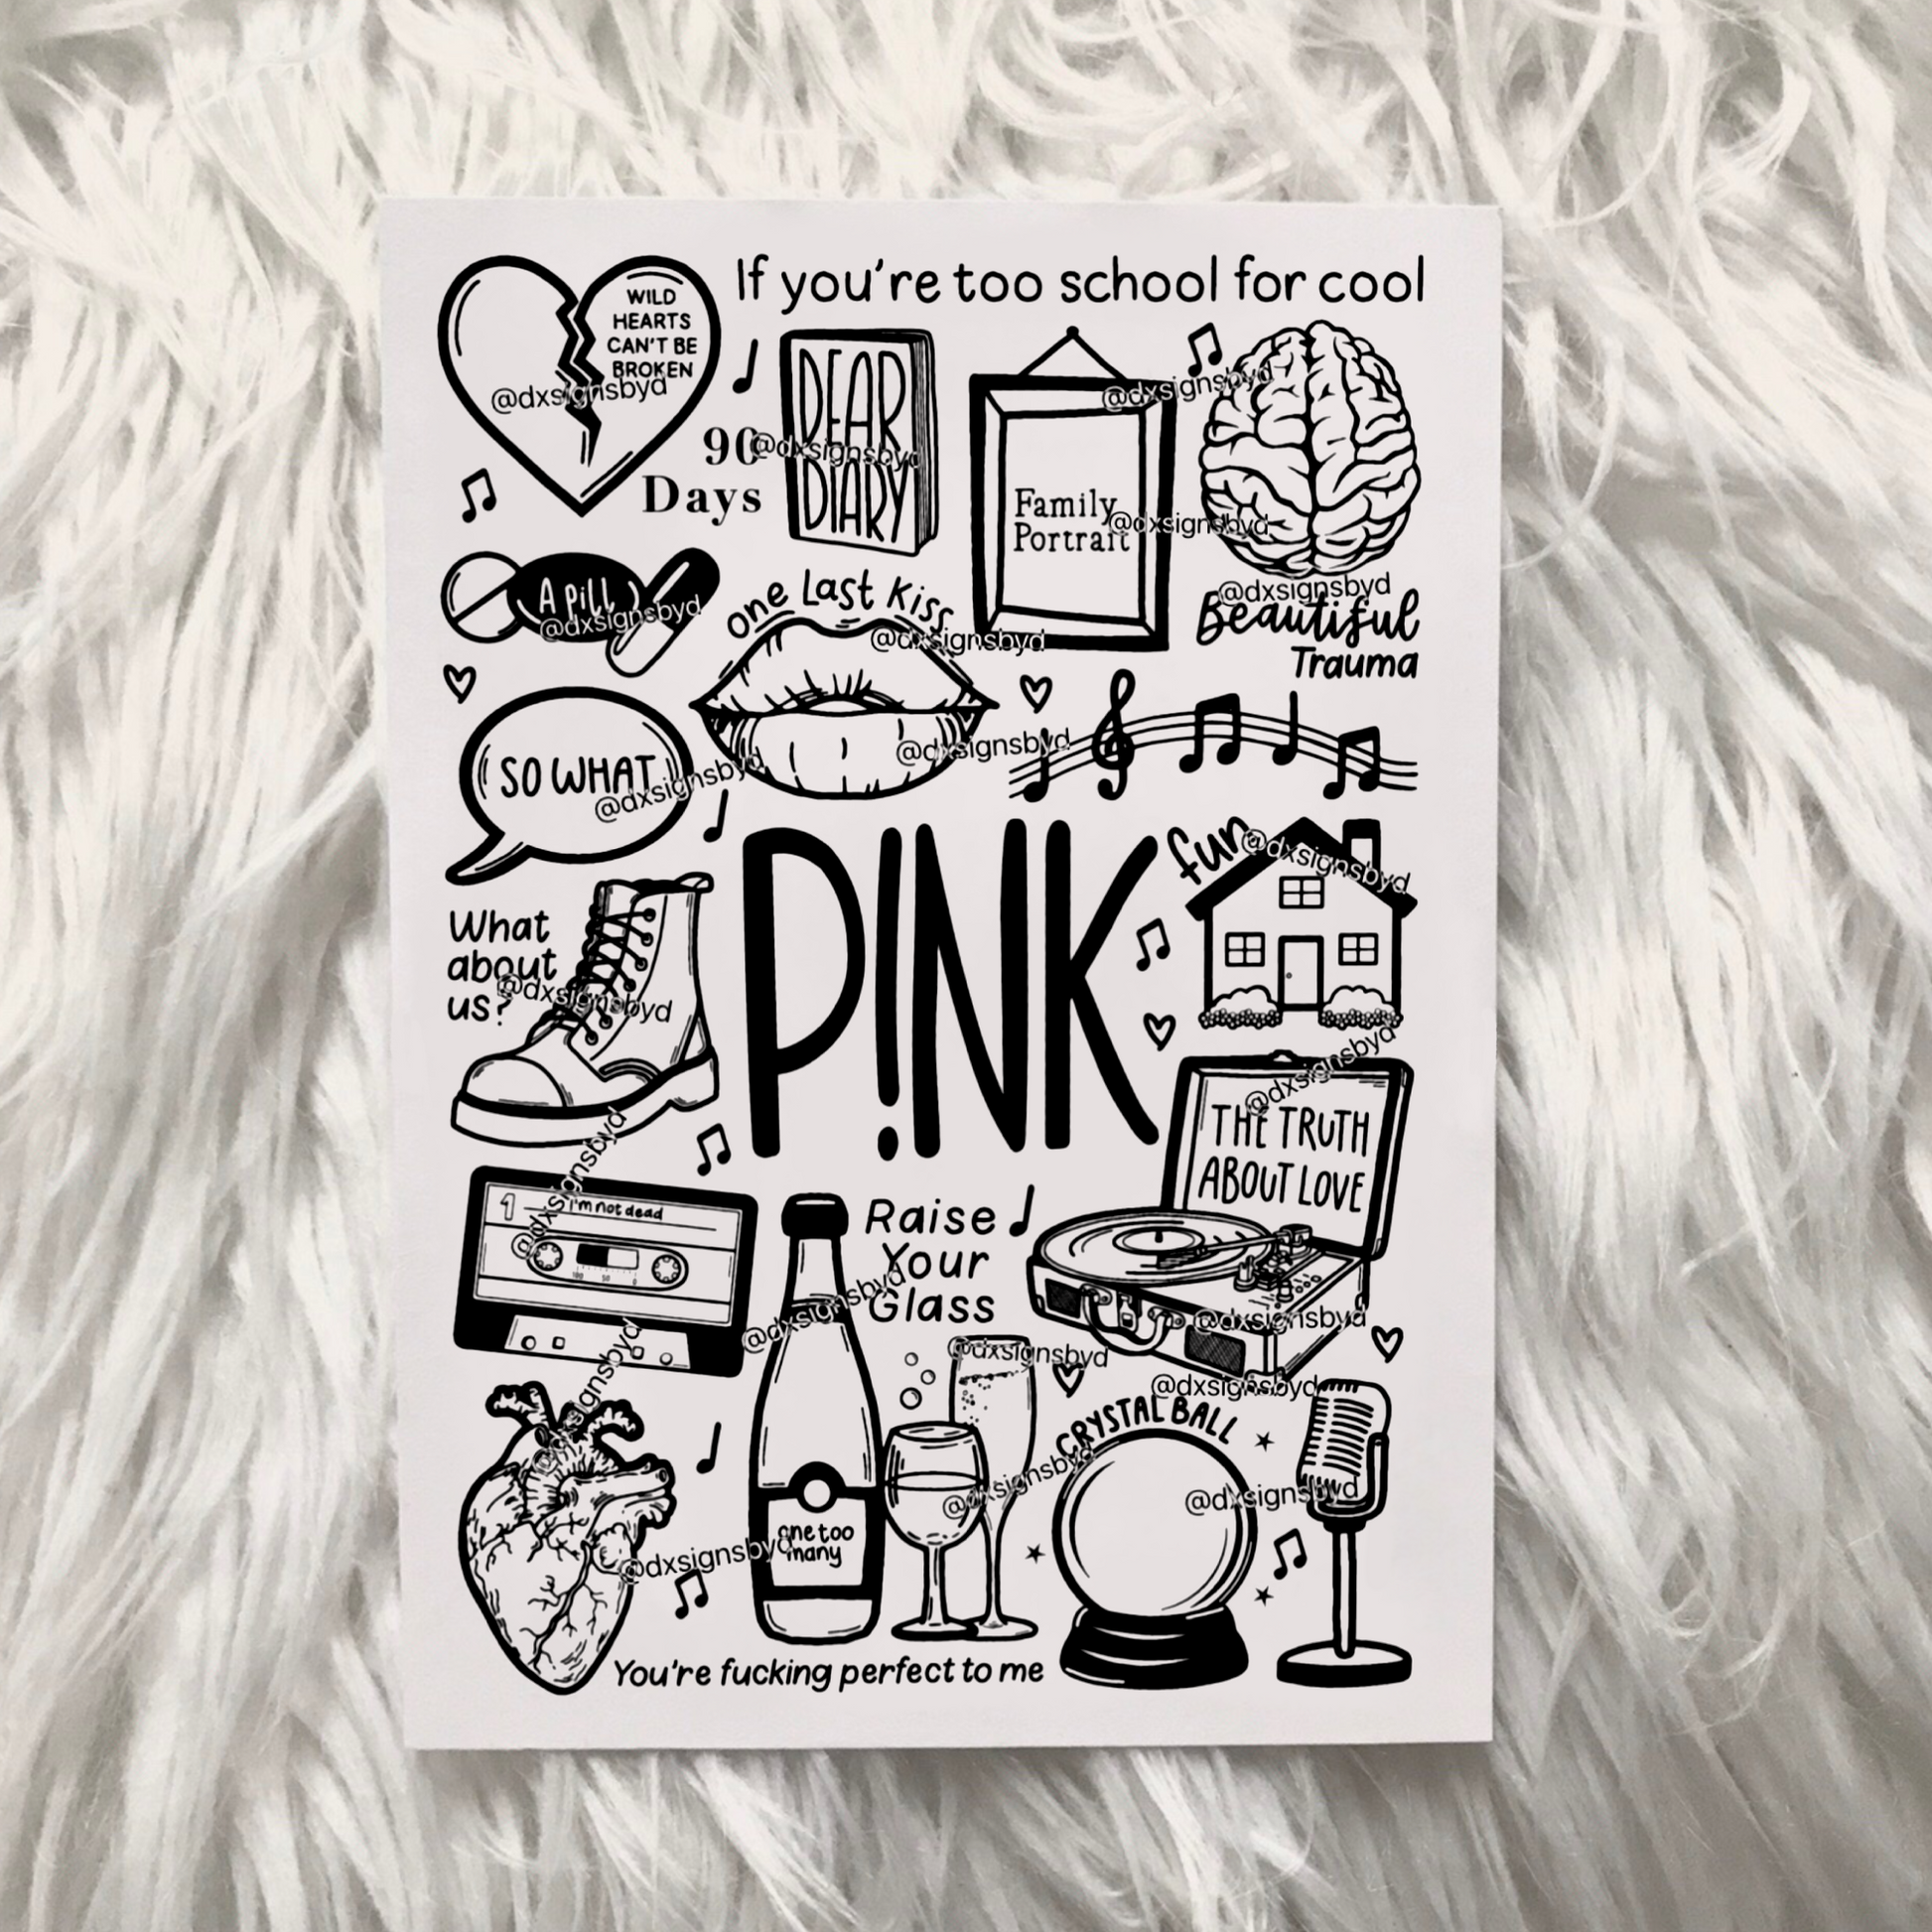 If you're too school for cool
WILD
HEARTS
CAN'T BE
BROKEN
@dxsignsbyd
90
Days
DEAR
DIARY
@dxsignsbyd
Family
Portrait
@dxsignsbyd
@dxsignsbyd
@dxsignsbyd
Beautiful
Trauma
A pill
@dxsignsbyd
One Last Kiss
@dxsignsbyd
@dxsignsbyd
SO WHAT
@dxsignsbyd
P!NK
fun
@dxsignsbyd
What
about
us?
@dxsignsbyd
@dxsignsbyd
THE TRUTH
ABOUT LOVE
@dxsignsbyd
1
I'm not dead
100 50 0
@dxsignsbyd
@dxsignsbyd
Raise
Your
Glass
@dxsignsbyd
@dxsignsbyd
@dxsignsbyd
CRYSTAL BALL
@dxsignsbyd
@dxsignsbyd
one too
many
@dxsignsbyd
You're fucking perfect to me